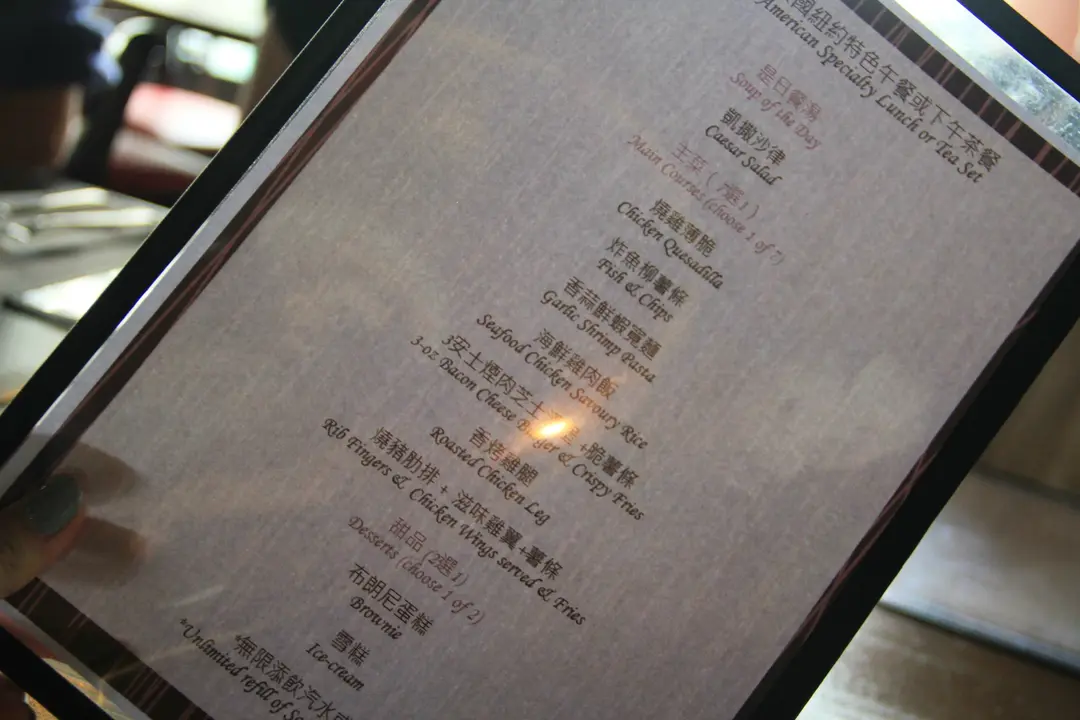 國紐約特色午餐或下午茶餐
American Specialty Lunch or Tea Set
是日餐湯
Soup of the Day
凱撒沙律
Caesar Salad
主菜 ( 7選1 )
Main Courses (choose 1 of 7)
燒雞薄脆
Chicken Quesadilla
炸魚柳薯條
Fish & Chips
香蒜鮮蝦寬麵
Garlic Shrimp Pasta
海鮮雞肉飯
Seafood Chicken Savoury Rice
3安士煙肉芝士 +脆薯條
3-oz Bacon Cheese & Crispy Fries
香烤雞腿
Roasted Chicken Leg
燒豬肋排 + 滋味雞翼+薯條
Rib Fingers & Chicken Wings served & Fries
甜品 (2選1)
Desserts (choose 1 of 2)
布朗尼蛋糕
Brownie
雪糕
Ice-cream
*無限添飲汽水
*Unlimited refill of